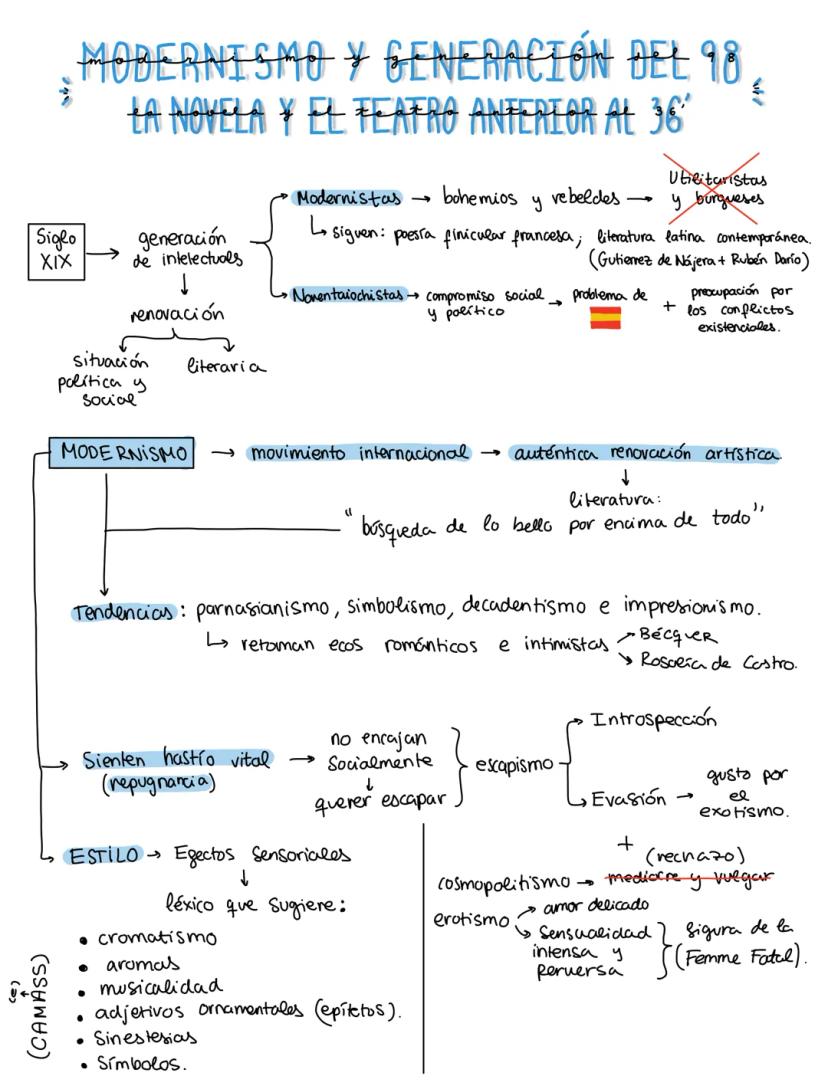 MODERNISMO Y GENERACIÓN DEL 98
modernismo y generación del 98
LA NOVELA Y EL TEATRO ANTERIOR AL 36'
la novela y el teatro anterior al 36'
Siglo XIX → generación de intelectuals
↓
renovación
situación política y social
literaria
Modernistas → bohemios y rebeldes → Utilitaristas y burgueses
↳ siguen: poesía finicular francesa; literatura latina contemporánea.
(Gutierez de Nájera + Rubén Darío)
Noventaiochistas → compromiso social y político → problema de + preocupación por los conflictos existenciales.
MODERNISMO → movimiento internacional → auténtica renovación artística
↓
literatura:
"búsqueda de lo bello por encima de todo"
Tendencias: parnasianismo, simbolismo, decadentismo e impresionismo.
↳ retoman ecos románticos e intimistas
Bécquer
Rosalía de Castro.
Sienten hastío vital (repugnancia) → no encajan socialmente
↓
querer escapar
escapismo
Introspección
Evasión → gusto por el exotismo.
+
(rechazo)
cosmopolitismo → mediocre y vulgar
erotismo
amor delicado
sensualidad intensa y perversa
figura de la (Femme Fatal).
ESTILO → Efectos sensoriales
↓
léxico que sugiere:
• cromatismo
• aromas
• musicalidad
• adjetivos ornamentales (epítetos).
• Sinestesias
• Símbolos.
(CAMASS)
(e)